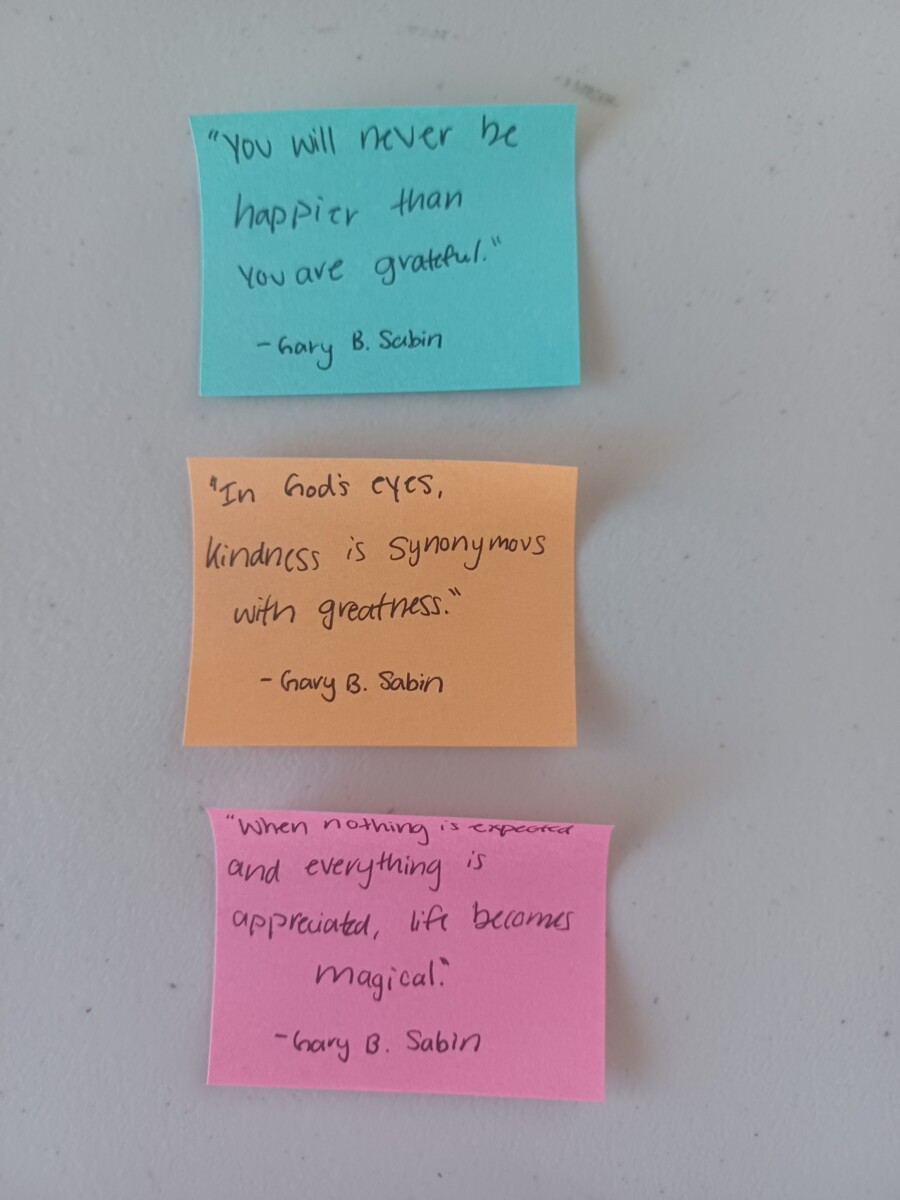 "You will never be
happier than
you are grateful."
- Gary B. Sabin
"In God's eyes,
kindness is synonymous
with greatness."
- Gary B. Sabin
"When nothing is expected
and everything is
appreciated, life becomes
magical."
- Gary B. Sabin